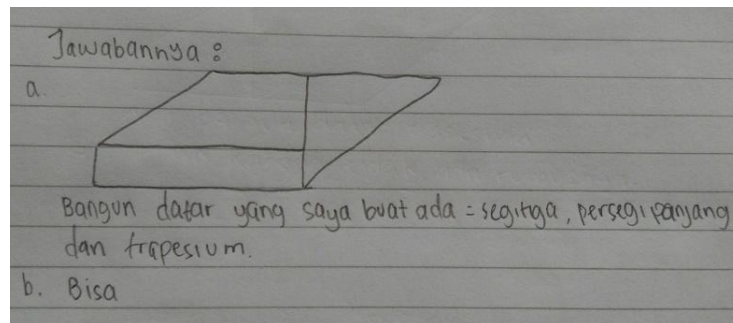 Jawabannya :
a.
Bangun datar yang saya buat ada = segitiga, persegi panjang
dan trapesium.
b. Bisa